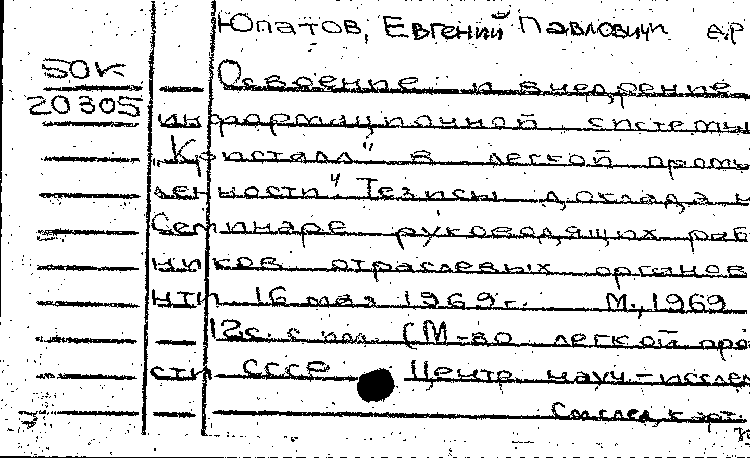 Юпатов, Евгений Павлович
50К
Освоение и внедрение
20305
информационной системы
„Кристалл" в легкой промы
ленности" Тезисы доклада н
Семинаре руководящих раб
ников отраслевых органов
НТИ 16 мая 1969г. М., 1969
12с. с ил. (М-во легкой про
сти СССР Центр. науч.-исслед
См. след. к-арт.